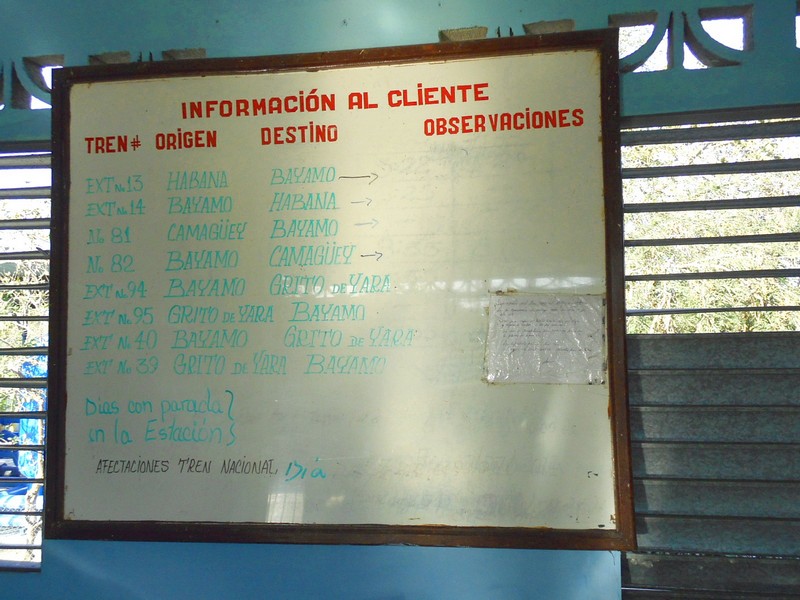 INFORMACIÓN AL CLIENTE
TREN# ORIGEN DESTINO OBSERVACIONES
EXT No 13 HABANA BAYAMO
EXT No 14 BAYAMO HABANA
No 81 CAMAGÜEY BAYAMO
No 82 BAYAMO CAMAGÜEY
EXT No 94 BAYAMO GRITO DE YARA
EXT No 95 GRITO DE YARA BAYAMO
EXT No 40 BAYAMO GRITO DE YARA
EXT No 39 GRITO DE YARA BAYAMO
Dias con parada
en la Estación
AFECTACIONES TREN NACIONAL Día